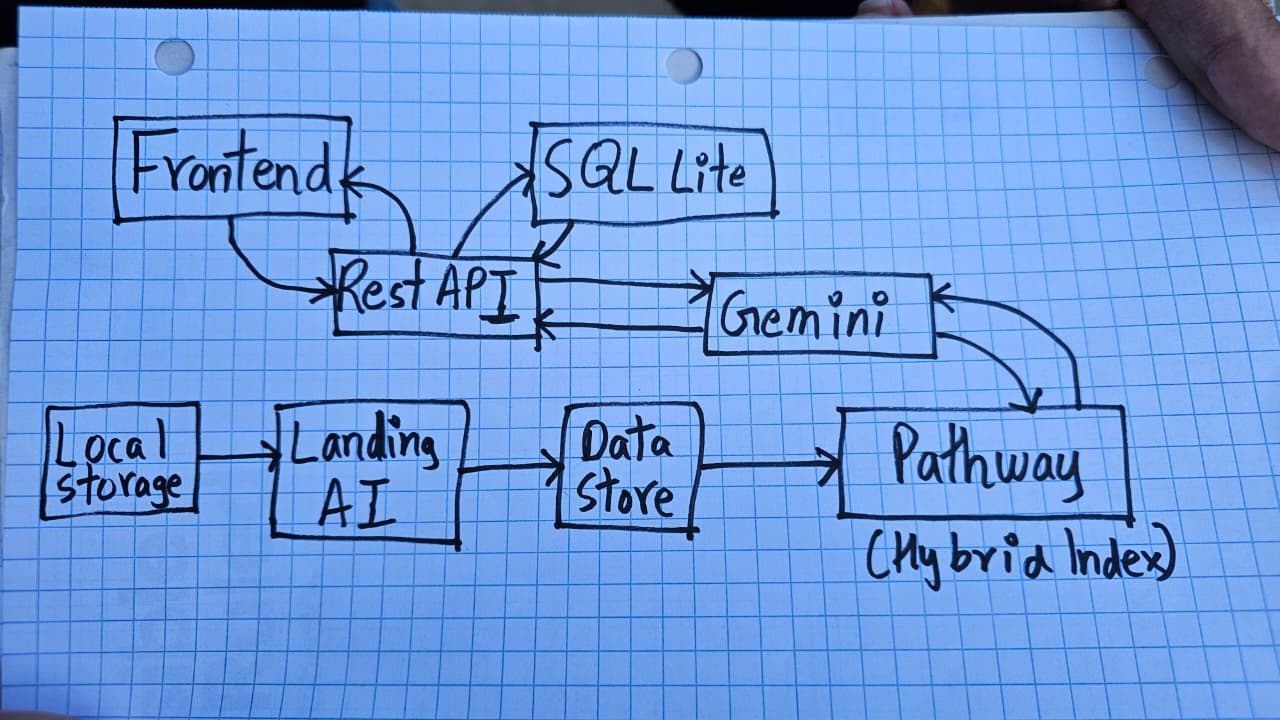 Frontend
SQL Lite
Rest API
Gemini
Local
storage
Landing
AI
Data
store
Pathway
(Hybrid Index)